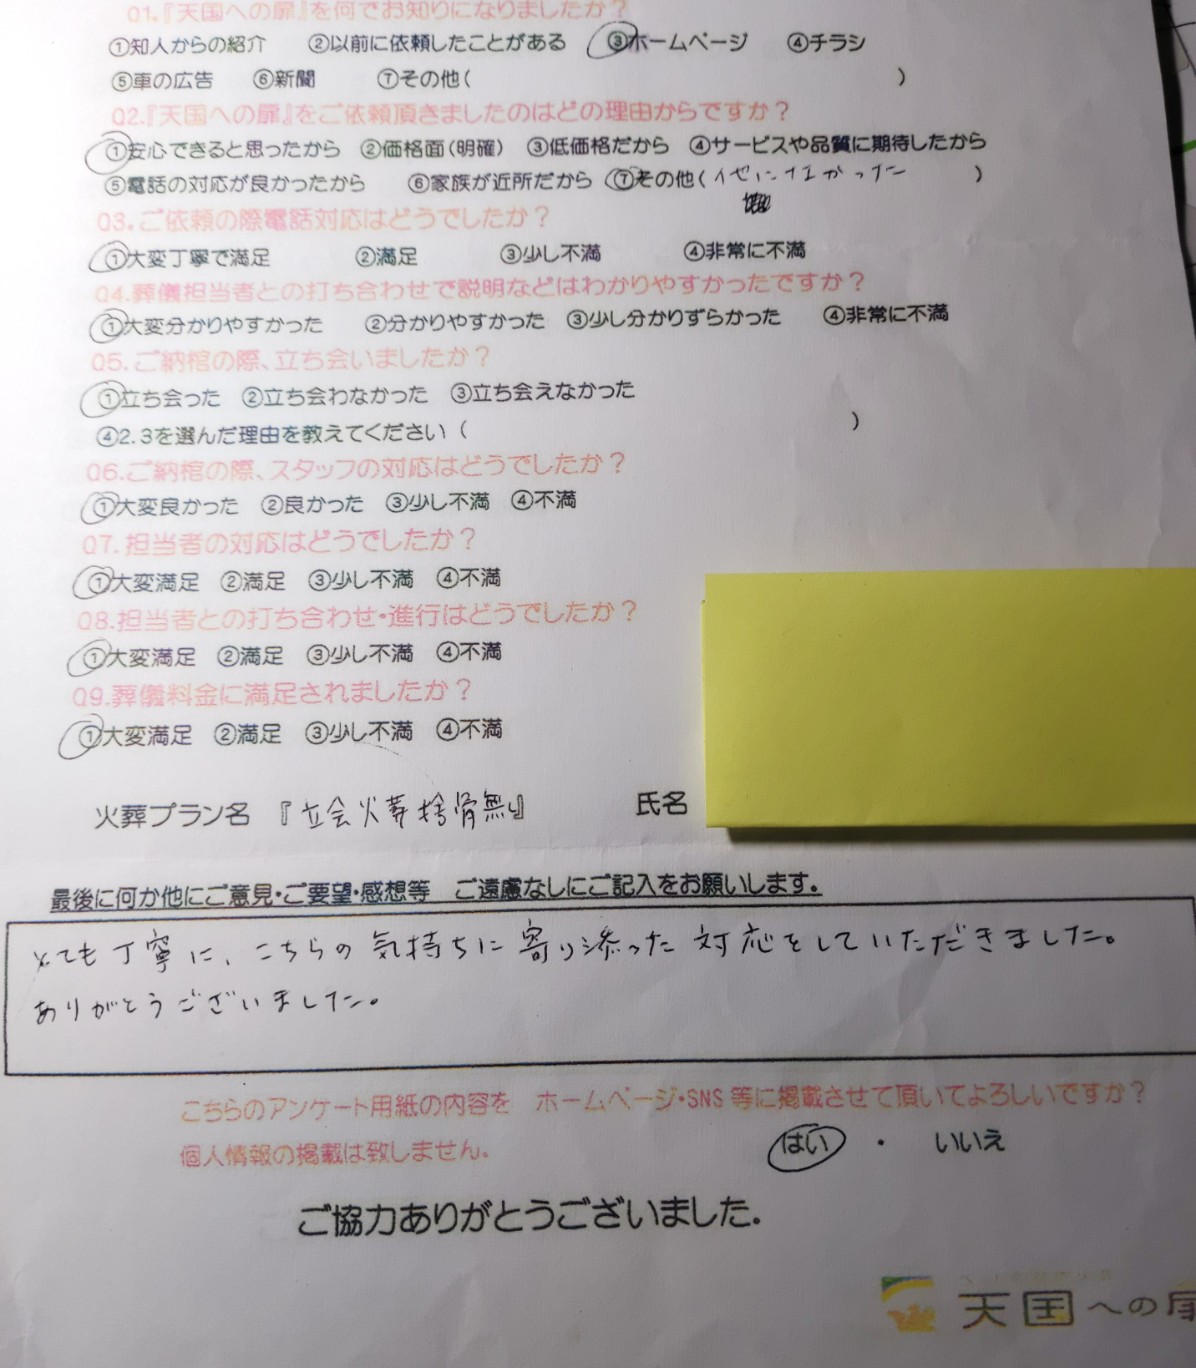 Q1.『天国への扉』を何でお知りになりましたか？
①知人からの紹介 ②以前に依頼したことがある ③ホームページ ④チラシ
⑤車の広告 ⑥新聞 ⑦その他( )
Q2.『天国への扉』をご依頼頂きましたのはどの理由からですか？
①安心できると思ったから ②価格面(明確) ③低価格だから ④サービスや品質に期待したから
⑤電話の対応が良かったから ⑥家族が近所だから ⑦その他(他になかった )
Q3.ご依頼の際電話対応はどうでしたか？
①大変丁寧で満足 ②満足 ③少し不満 ④非常に不満
Q4.葬儀担当者との打ち合わせで説明などはわかりやすかったですか？
①大変分かりやすかった ②分かりやすかった ③少し分かりずらかった ④非常に不満
Q5.ご納棺の際、立ち会いましたか？
①立ち会った ②立ち会わなかった ③立ち会えなかった
④2.3を選んだ理由を教えてください( )
Q6.ご納棺の際、スタッフの対応はどうでしたか？
①大変良かった ②良かった ③少し不満 ④不満
Q7.担当者の対応はどうでしたか？
①大変満足 ②満足 ③少し不満 ④不満
Q8.担当者との打ち合わせ・進行はどうでしたか？
①大変満足 ②満足 ③少し不満 ④不満
Q9.葬儀料金に満足されましたか？
①大変満足 ②満足 ③少し不満 ④不満
火葬プラン名 『立会火葬捨骨無』 氏名
最後に何か他にご意見・ご要望・感想等 ご遠慮なしにご記入をお願いします。
とても丁寧に、こちらの気持ちに寄り添った対応をしていただきました。
ありがとうございました。
こちらのアンケート用紙の内容を ホームページ・SNS等に掲載させて頂いてよろしいですか？
個人情報の掲載は致しません。 はい ・ いいえ
ご協力ありがとうございました.
天国への扉